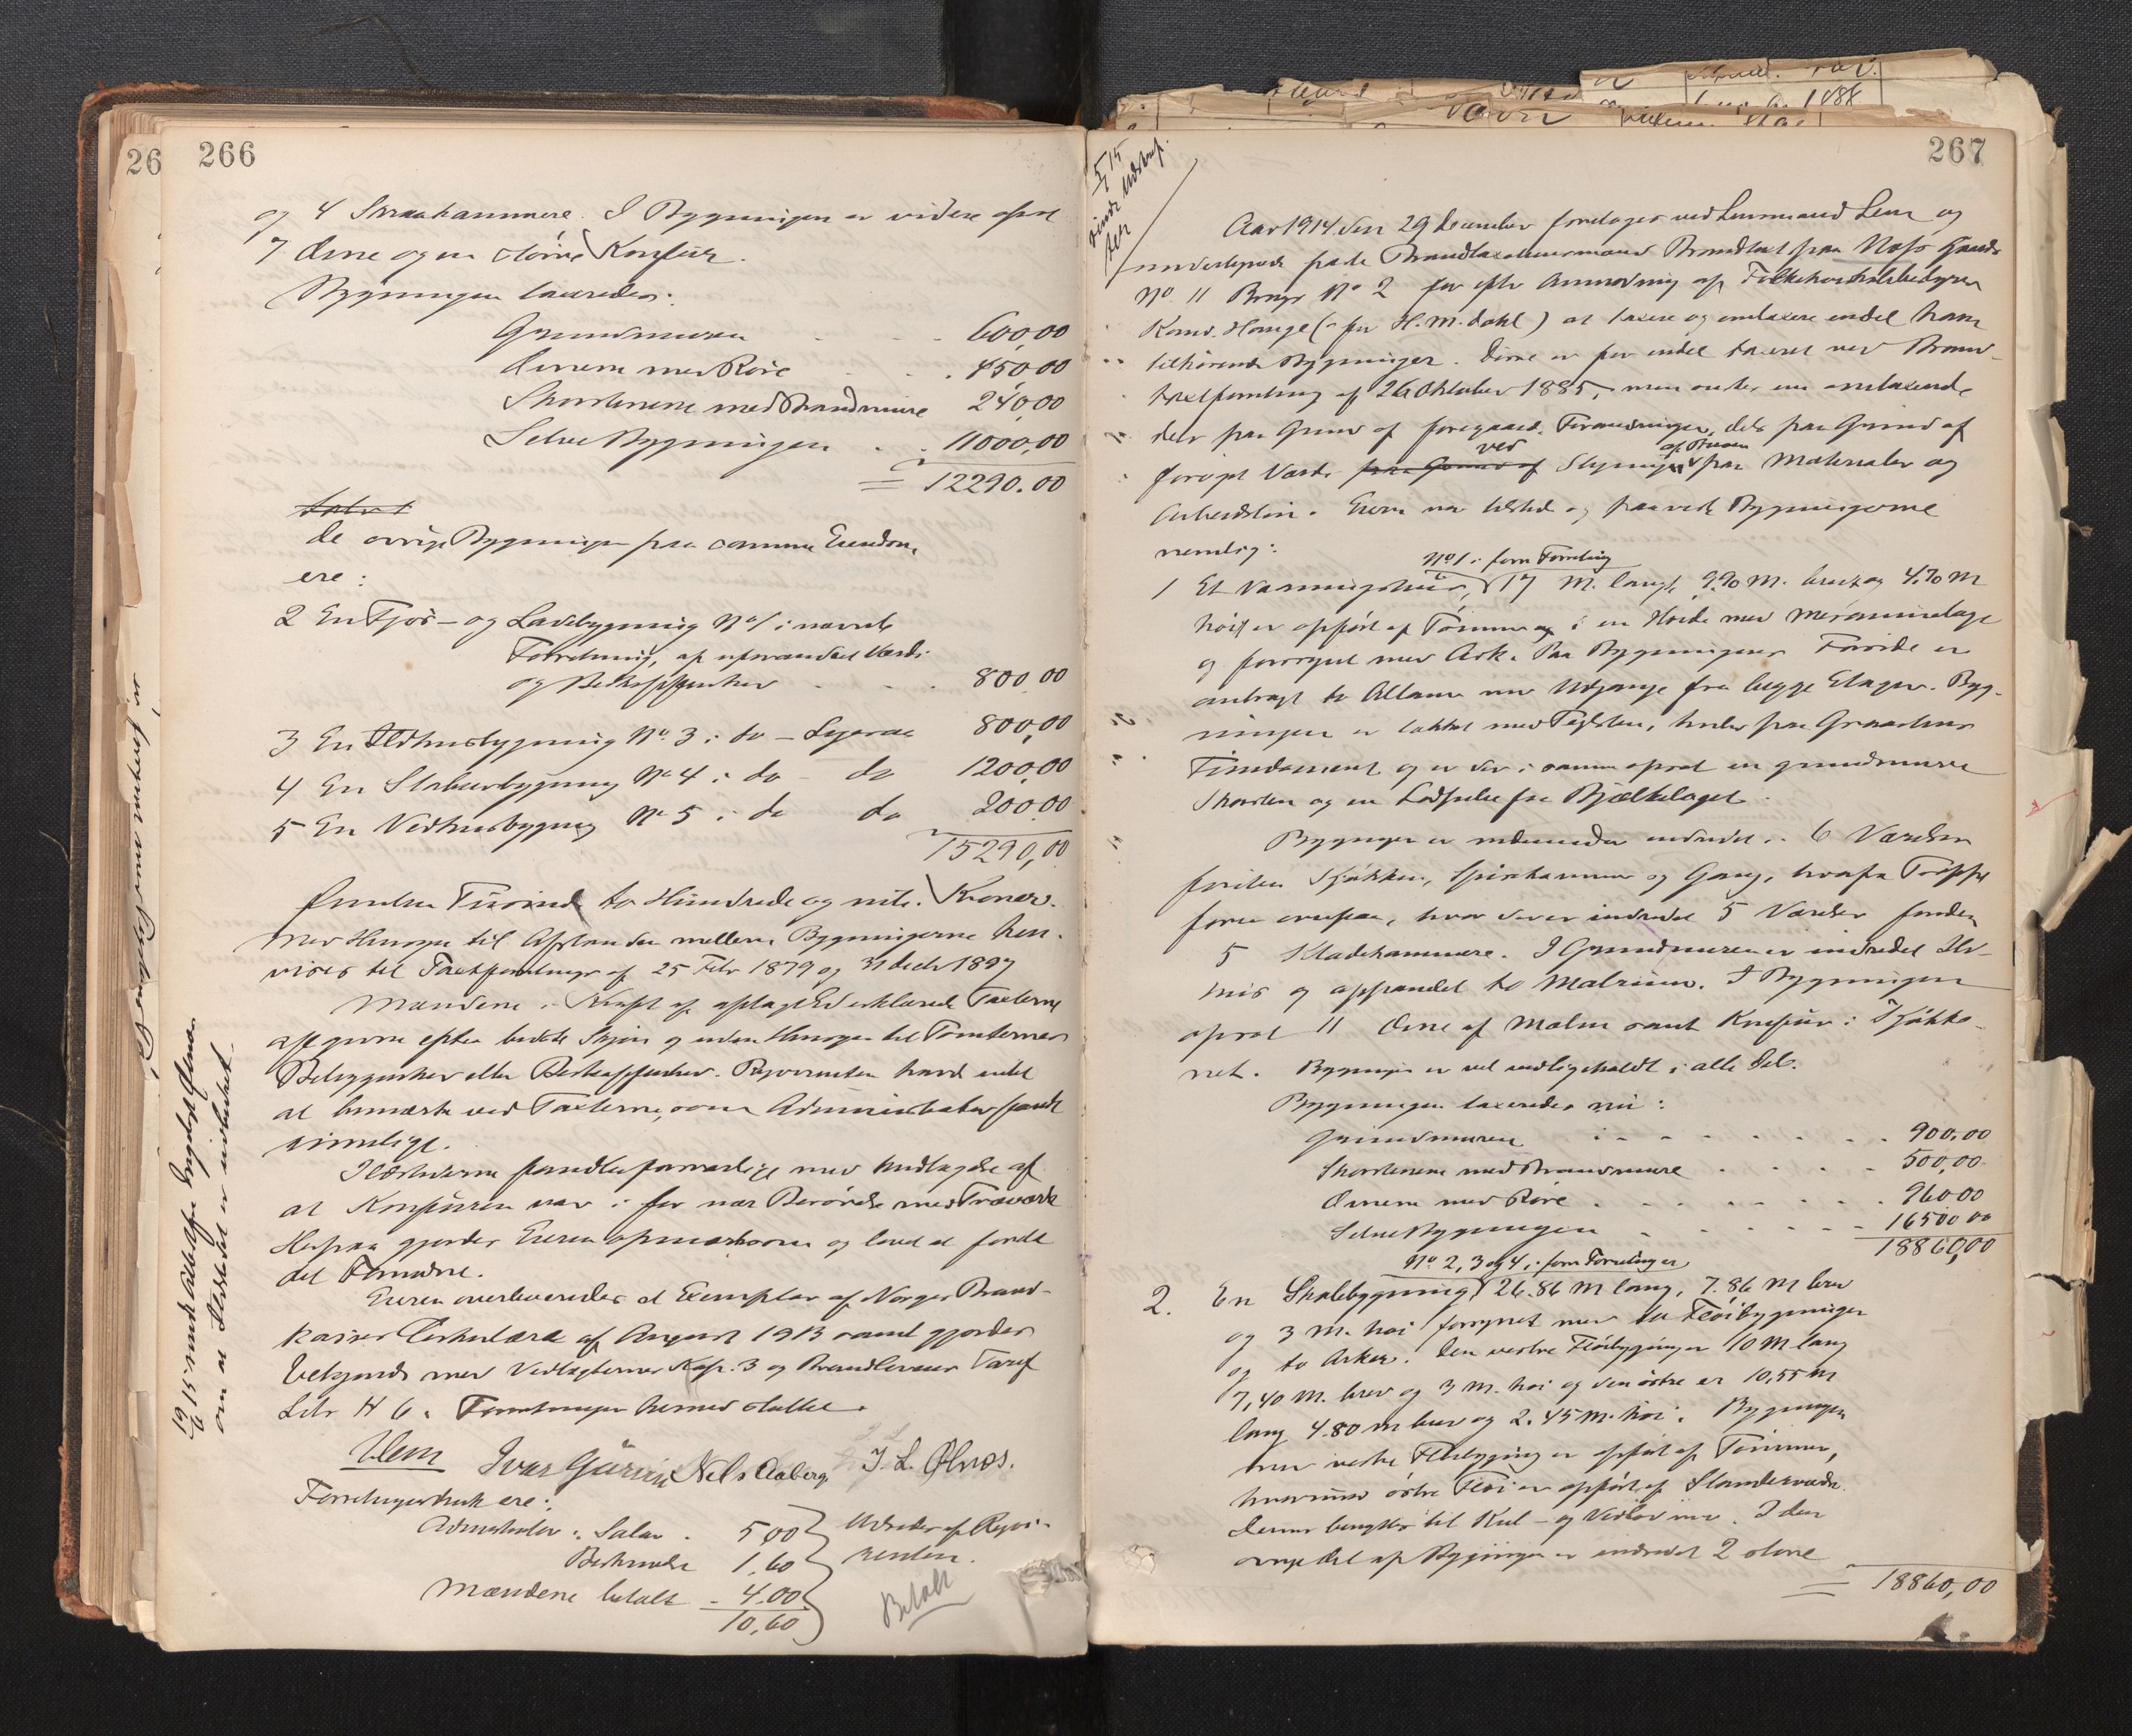 266
og 4 Skraakammere. I Bygningen er videre opsat
7 Ovne og en större Komfür.
Bygningen taxeredes:
Grundmuren 600,00
Ovnene med Röre 450,00
Skorstenene med Brandmure 240,00
Selve Bygningen 11000,00
= 12290.00
de övrige Bygninger paa samme Eiendom
ere:
2 En Fjös- og Ladebygning No 1 i nævnte
Forretning, af uforandret Værdi
og Beskaffenhed 800,00
3 En Ildhusbygning No. 3 i do - Ligesaa 800,00
4 En Stabursbygning No 4 i do - do 1200,00
5 En Vedhusbygning No 5 i do do 200,00
15290,00
Femten Tusinde to Hundrede og nitti Kroner.
Med Hensyn til Afstanden mellem Bygningerne hen-
vises til Taxtforretninger af 25 Febr 1879 og 31 decbr 1897
Mændene i Kraft af aflagt Ed erklærede Taxterne
afgivne efter bedste Skjön og uden Hensyn til Tomternes
Beliggenhed eller Beskaffenhed. Rekvirenten havde intet
at bemærke ved Taxterne, som Administrator fandt
rimelige.
Ildstederne fandtes forsvarlige med Undtagelse af
at Komfüren var i for nær Berörelse med Træværk
Herpaa gjordes Eieren opmærksom og lovede at forde
det Fornödne.
Eieren overleveredes et Exemplar af Norges Brand-
kasses Cirkulære af August 1913 samt gjordes
bekjendt med Vedtægternes Kap. 3 og Brandlovens Taxt
Litr H 6. Forretningen hermed sluttet.
Lem Ivar Gjürin Nels Aaberg J. L. Ölnes.
Forretningens bruk ere:
Administrator i Salær 5,00
Beskrivelse 1,60
Mændene betalt - 4.00
10,60
Udredes af Rekvi-
renten.
Betalt
om at Arbeidet er udbedret.
267
5/1 15
sendt Udskrift
Aar 1914 den 29 December foretages ved Lensmand Lem og
undertegnede faste Brandtaxationsmænd Brandtaxt paa Næss Gaards
No 11 Brugs No 2 for efter Anmodning af Folkehöiskolebestyrer
Kand. Hauge (per H. M. Dahl) at taxere og omtaxere endel ham
tilhörende Bygninger. Disse er for endel taxeret ved Brand-
taxtforretning af 26 Oktober 1885, men önskes nu omtaxerede
dels paa Grund af foregaaede Forandringer, dels paa Grund af
foröget Værdi ved Stigninger af Prisen paa Materialer og
Arbeidslön. Eieren var tilstede og paaviste Bygningerne
nemlig:
No 1 i forn Forretning
1 Et Vaaningshus, 17 M. langt, 9.70 M. bredt og 4.70 M
höit er opfört af Tömmer i en Höide med Mesaninetage
og forsynet med Ark. Paa Bygningens Forside er
anbragt to Altaner med Udgange fra begge Etager. Byg-
ningen er tækket med Teglsten, hviler paa Graastens
Fundament og er der i samme opsat en grundmuret
Skorsten og en Lodpibe fra Bjælkelaget.
Bygningen er nedenunder indredet i 6 Værelser
foruden Kjökken, Spisekammer og Gang, hvorfra Trappe
förer ovenpaa, hvor der er indredet 5 Værelser foruden
5 Kladekammere. I Grundmuren er indredet Ild-
hus og afpanelet to Matrum. I Bygningen
opsat 11 Ovne af Malm samt Komfür i Kjökke-
net. Bygningen er vel vedligeholdt i alle Dele.
Bygningen taxeredes nu:
Grundmuren 900,00
Skorstenene med Brandmure 500,00
Ovnene med Röre 960,00
Selve Bygningen 16500,00
18860,00
No 2, 3 og 4 i forn Forretninger
2. En Skolebygning 26.86 M lang, 7.86 M bred
og 3 M. höi forsynet med to Flöibygninger
og to Arker. Den vestre Flöibygning er 10 M lang
7,40 M. bred og 3 M. höi og den östre er 10,55 M
lang 4.80 M bred og 2.45 M. höi. Bygningen
med vestre Flöibygning er opfört af Tömmer,
hvorimod östre Flöi er opfört af Standerværk.
Denne benyttes til Kul- og Vedbod m.v. I den
övrige Del af Bygningen er indredet 2 store
= 18860,00